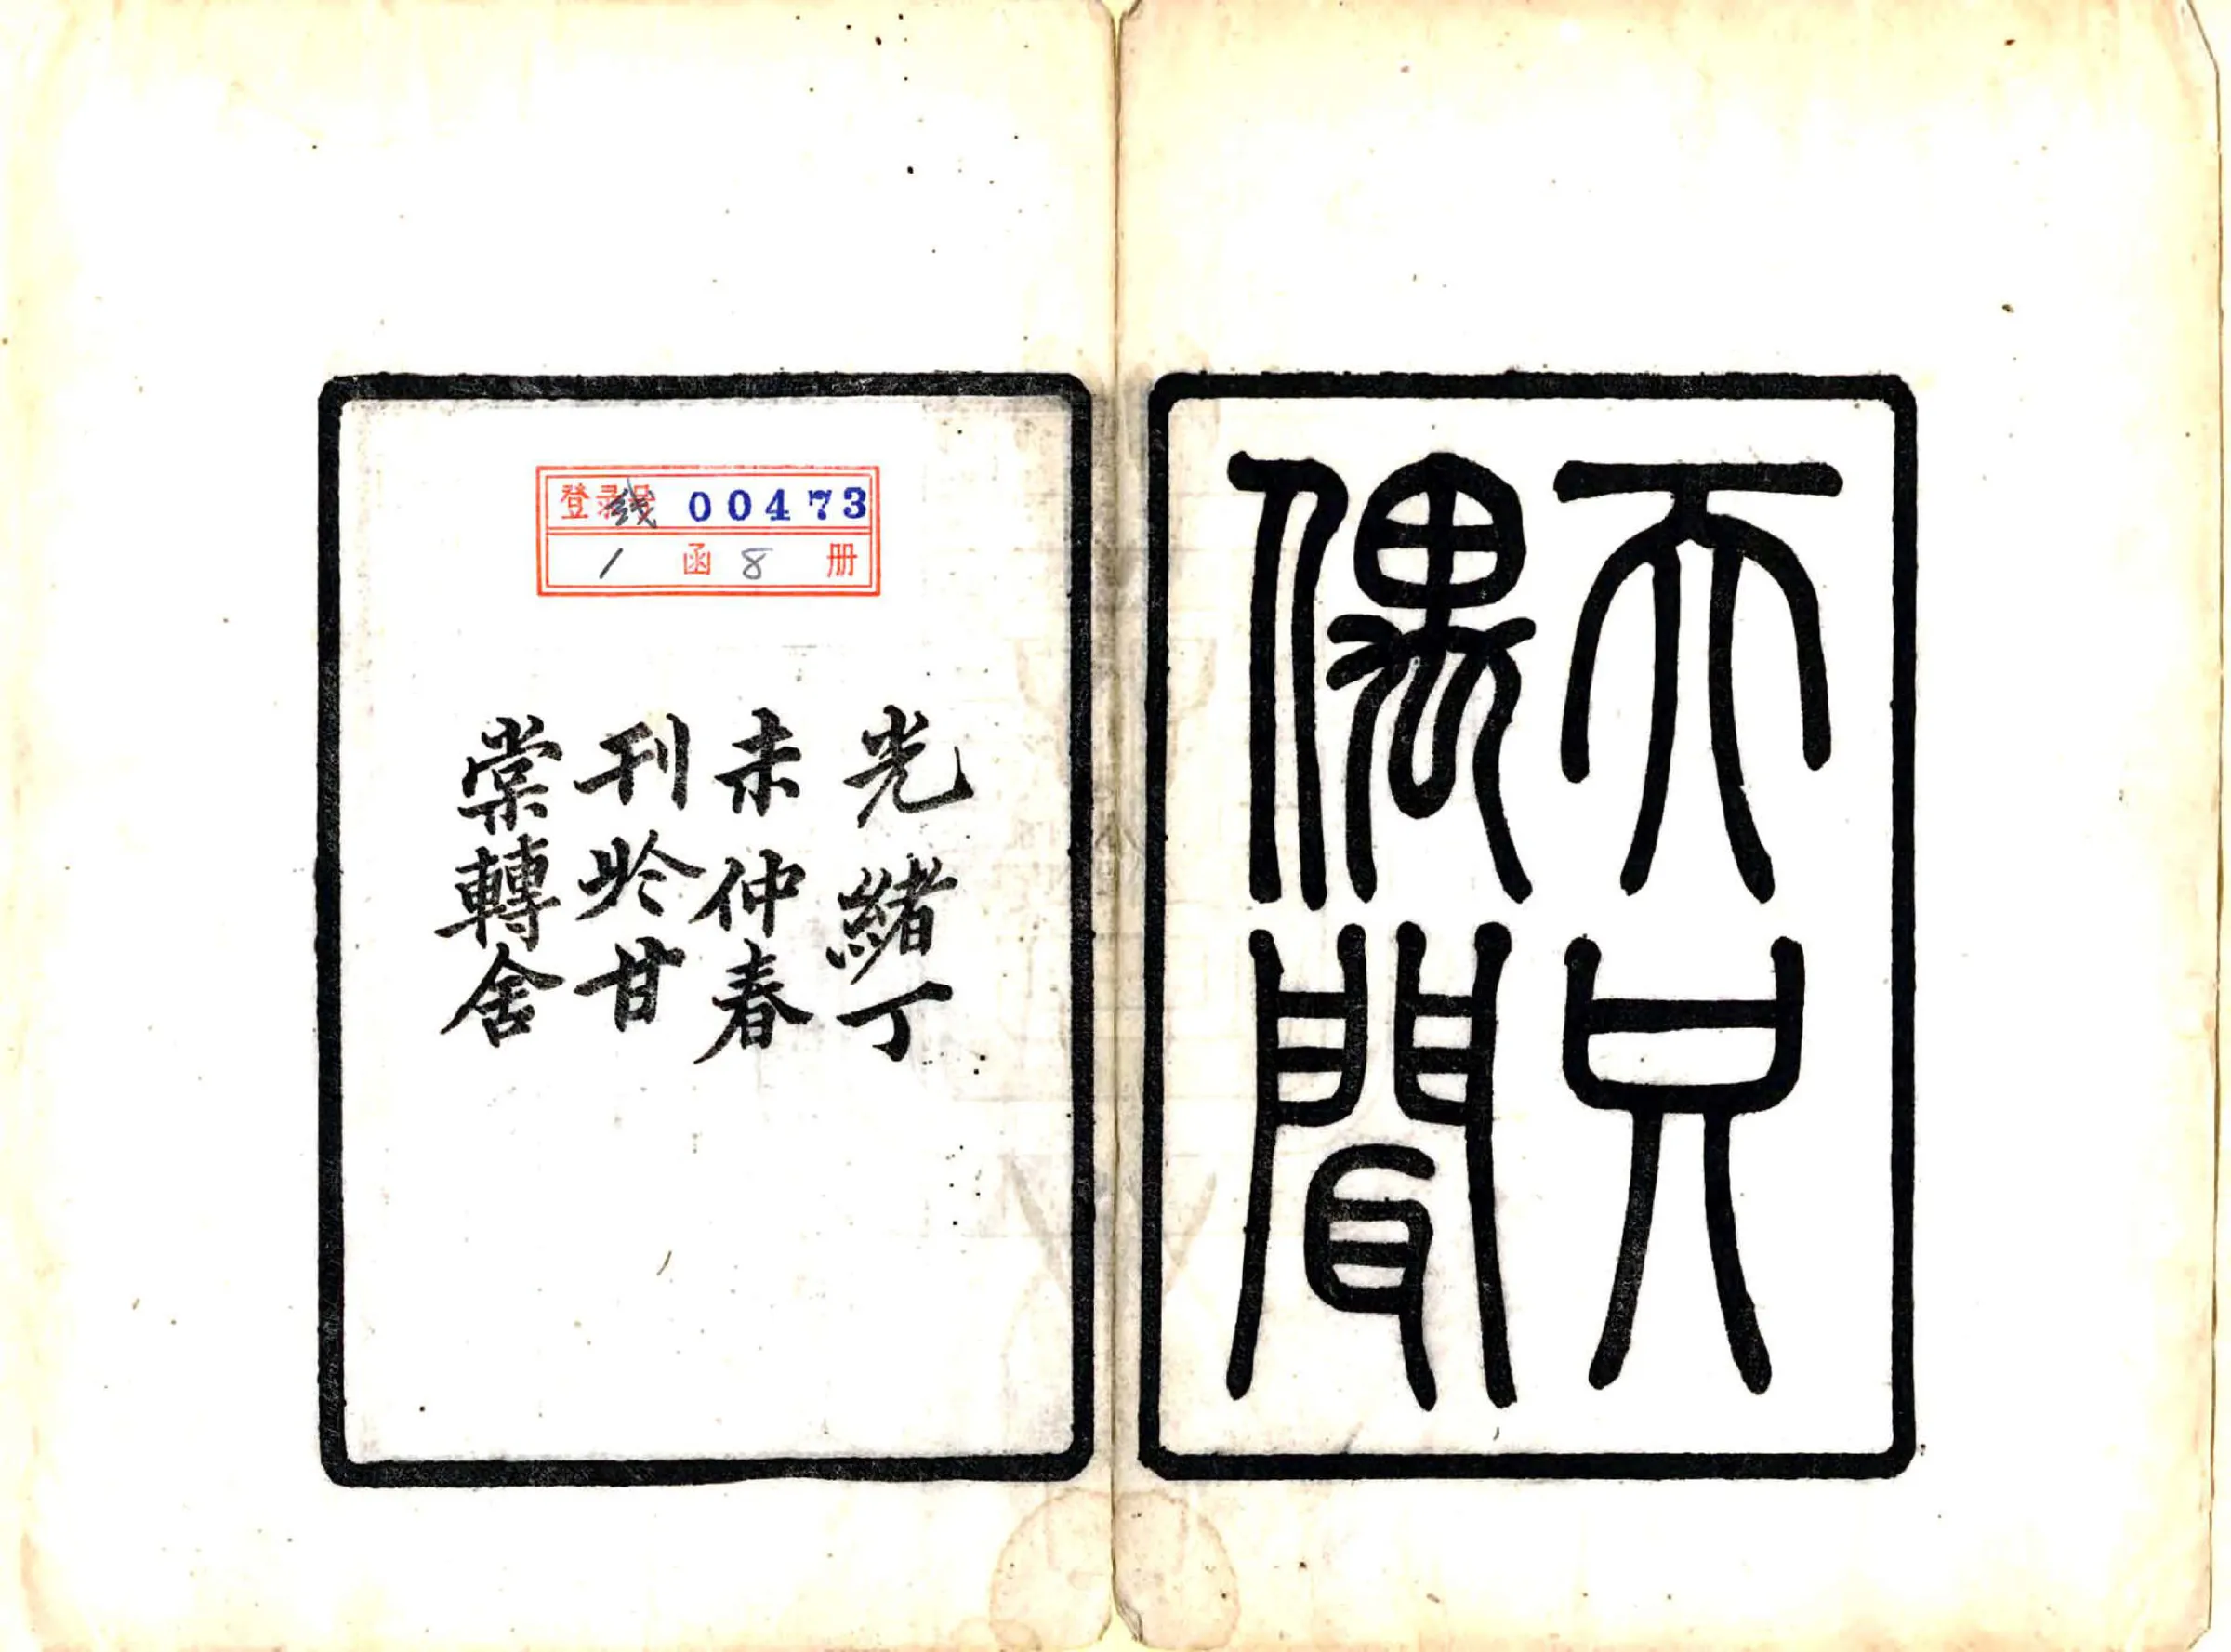 天咫
偶聞
光緒丁
未仲春
刊於甘
棠轉舍
登录号 线 00473
1 函 8 册